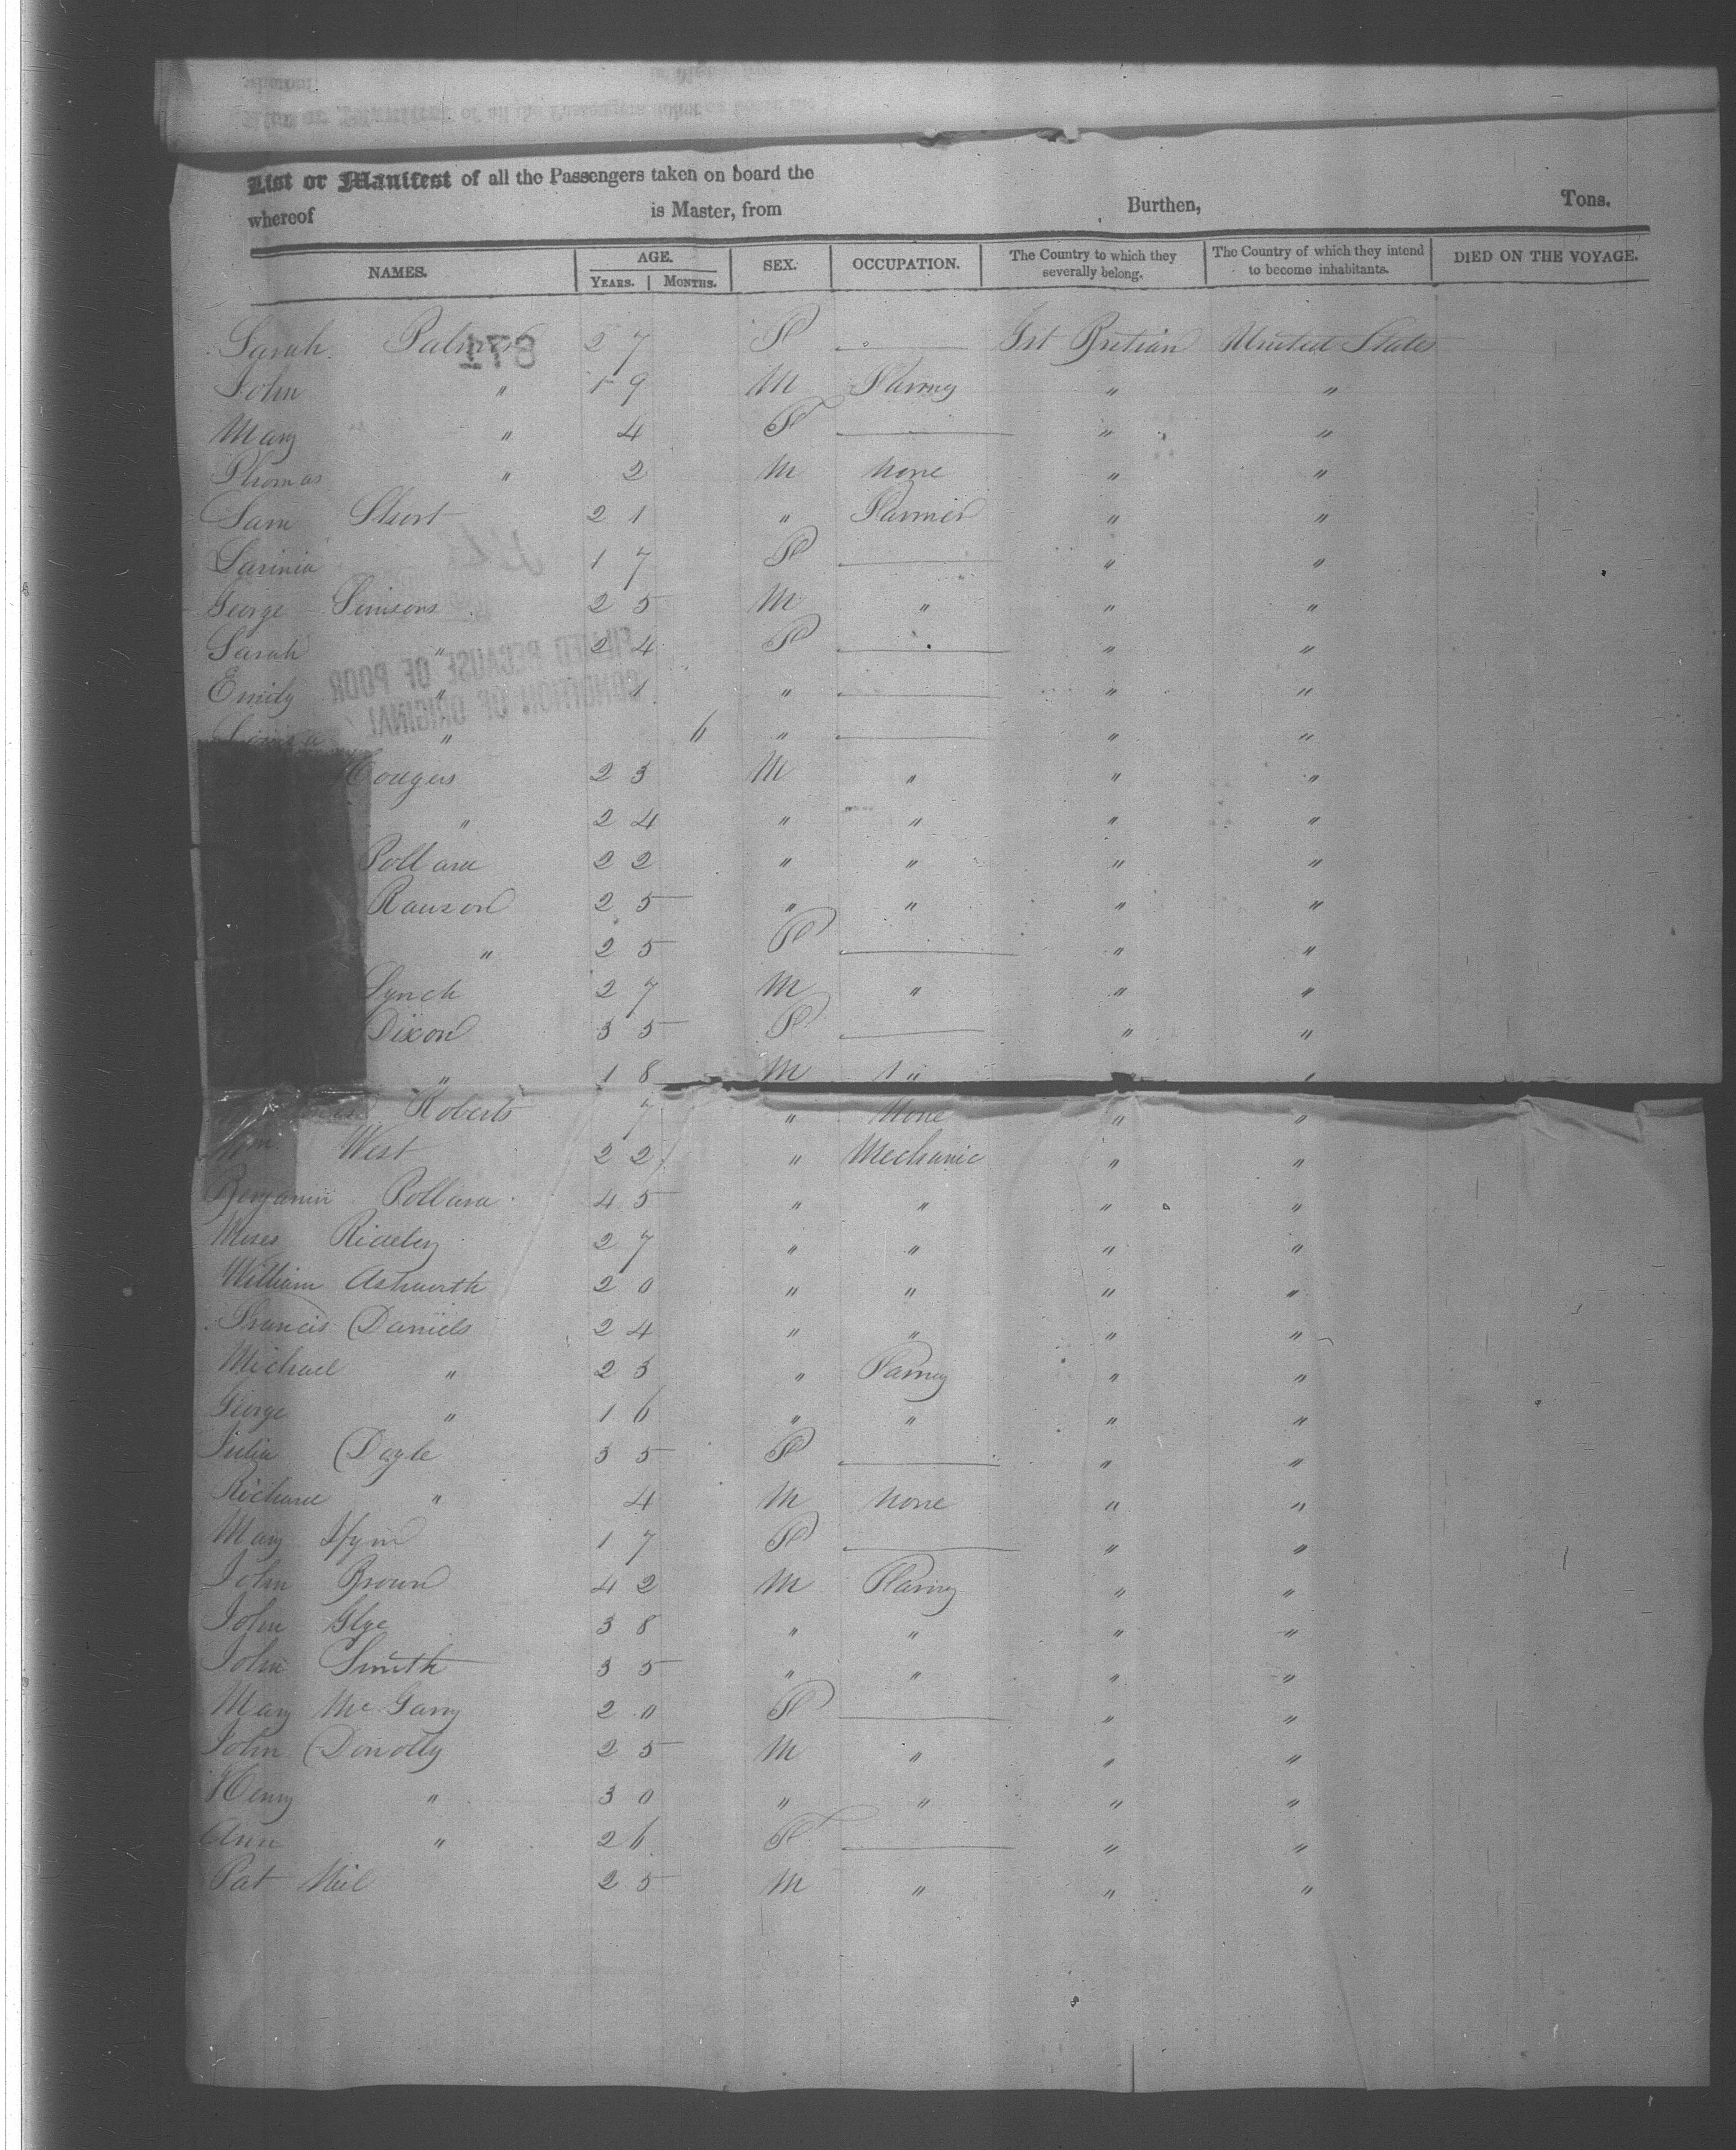 List or Manifest of all the Passengers taken on board the
whereof is Master, from Burthen, Tons.
NAMES. AGE. SEX. OCCUPATION. The Country to which they severally belong. The Country of which they intend to become inhabitants. DIED ON THE VOYAGE.
YEARS. MONTHS.
Sarah Palmer 27 F — Grt Bretian United States
John " 19 M Farmg " "
Mary " 4 F — " "
Thomas " 2 M none " "
Sam Short 21 " Farmer " "
17 F — " "
George Simsons 25 M " " "
Sarah " 24 F — " "
Emily " 1 " — " "
" 6 " — " "
Hougers 23 M " " "
" 24 " " " "
Pollard 22 " " " "
Rawson 25 " " " "
" 25 F — " "
Lynch 27 M " " "
Dixon 35 F — " "
" 18 M " " "
Roberts 7 " None " "
Wm West 22 " Mechanic " "
Benjamin Pollard 45 " " " "
Moses Rideley 27 " " " "
William Ashworth 20 " " " "
Francis Daniels 24 " " " "
Michael " 23 " Farmg " "
George " 16 " " " "
Julia Doyle 35 F — " "
Richard " 4 M none " "
Mary 17 F — " "
John Brown 42 M Farmg " "
John 38 " " " "
John Smith 35 " " " "
Mary McGarry 20 F — " "
John Donolly 25 M " " "
Henry " 30 " " " "
Ann " 26 F — " "
Pat Niel 25 M " " "
871
FILMED BECAUSE OF POOR
CONDITION OF ORIGINAL